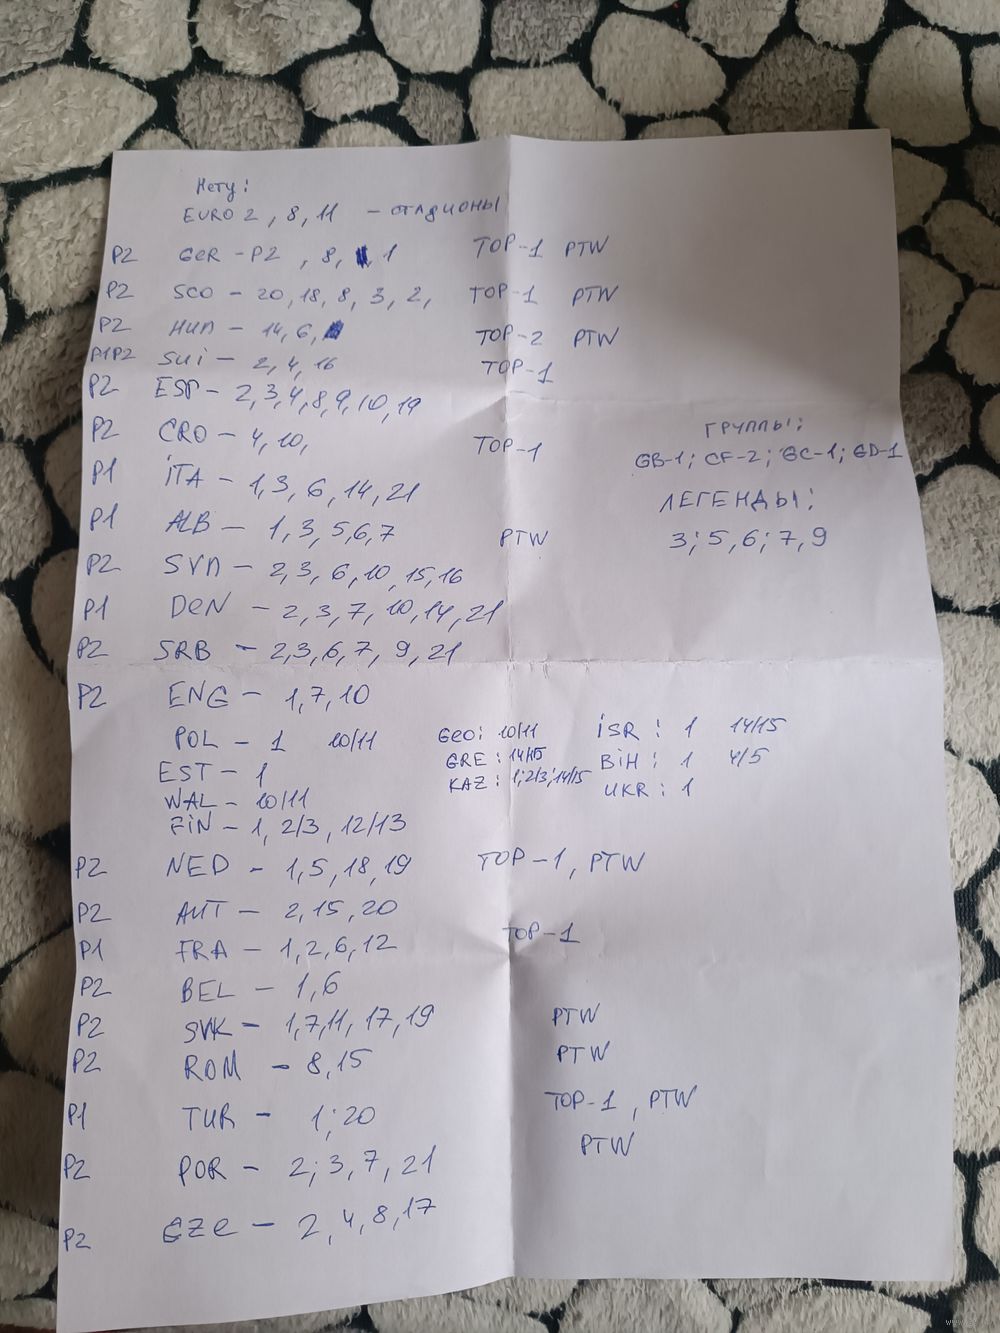 Нету:
EURO 2, 8, 11 - СТАДИОНЫ
P2 GER - P2, 8, 1 TOP-1 PTW
P2 SCO - 20, 18, 8, 3, 2, TOP-1 PTW
P2 HUN - 14, 6, TOP-2 PTW
P1P2 SUI - 2, 4, 16 TOP-1
P2 ESP - 2, 3, 4, 8, 9, 10, 19
P2 CRO - 4, 10, TOP-1
ГРУППЫ:
GB-1; CF-2; GC-1; GD-1
P1 ITA - 1, 3, 6, 14, 21
ЛЕГЕНДЫ:
3; 5, 6; 7, 9
P1 ALB - 1, 3, 5, 6, 7 PTW
P2 SVN - 2, 3, 6, 10, 15, 16
P1 DEN - 2, 3, 7, 10, 14, 21
P2 SRB - 2, 3, 6, 7, 9, 21
P2 ENG - 1, 7, 10
POL - 1 10/11 GEO: 10/11 ISR: 1 14/15
EST - 1 GRE: 14/15 BIH: 1 4/5
WAL - 10/11 KAZ: 1; 2/3; 14/15 UKR: 1
FIN - 1, 2/3, 12/13
P2 NED - 1, 5, 18, 19 TOP-1, PTW
P2 AUT - 2, 15, 20
P1 FRA - 1, 2, 6, 12 TOP-1
P2 BEL - 1, 6
P2 SVK - 1, 7, 11, 17, 19 PTW
P2 ROM - 8, 15 PTW
P1 TUR - 1; 20 TOP-1, PTW
P2 POR - 2; 3, 7, 21 PTW
P2 CZE - 2, 4, 8, 17